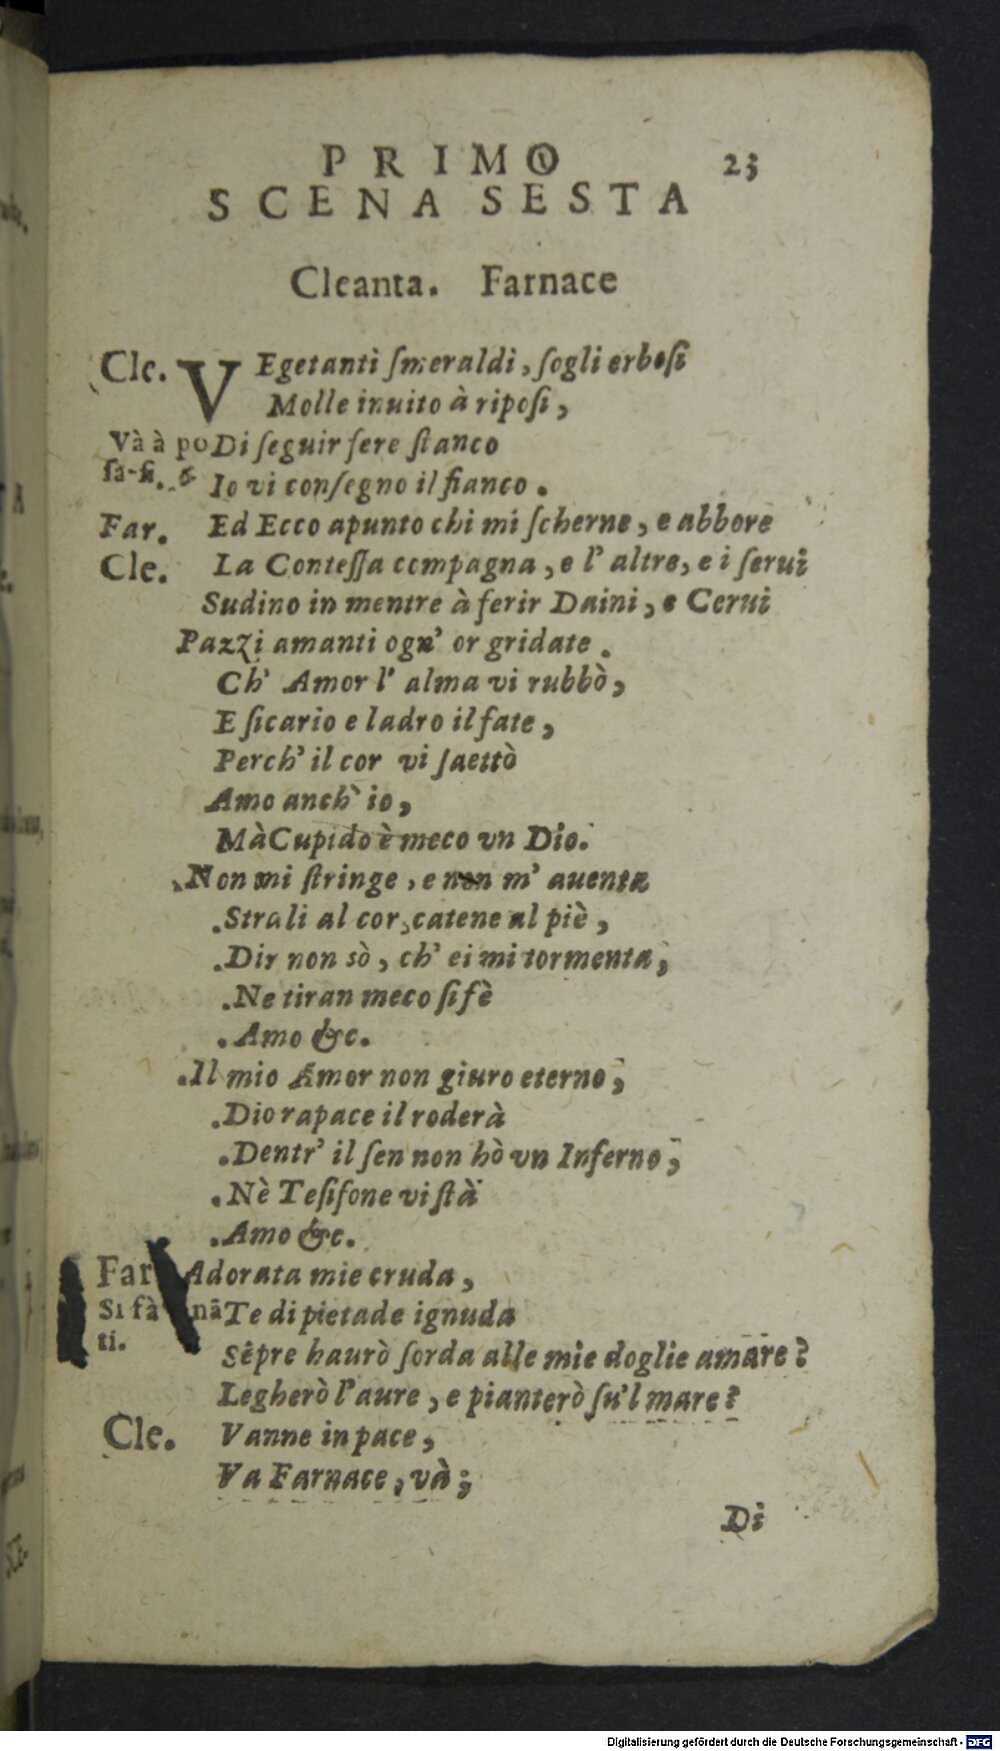 PRIMO 23
SCENA SESTA
Cleanta. Farnace
Cle. VEgetanti ſmeraldi, ſogli erboſi
Molle inuito à ripoſi,
Và à po Di ſeguir fere ſtanco
ſa-ſi. Io vi conſegno il fianco.
Far. Ed Ecco apunto chi mi ſcherne, e abbore
Cle. La Conteſſa compagna, e l' altre, e i ſerui
Sudino in mentre à ferir Daini, e Cerui
Pazzi amanti ogn' or gridate.
Ch' Amor l' alma vi rubbò,
E ſicario e ladro il fate,
Perch' il cor vi ſaettò
Amo anch' io,
Mà Cupido è meco vn Dio.
Non mi ſtringe, e non m' auenta
Strali al cor, catene al piè,
Dir non sò, ch' ei mi tormenta,
Ne tiran meco ſi fè
Amo &c.
Il mio Amor non giuro eterno,
Dio rapace il roderà
Dentr' il ſen non hò vn Inferno,
Nè Teſifone vi ſtà
Amo &c.
Far Adorata mie cruda,
Si fà nā Te di pietade ignuda
ti. Sēpre haurò ſorda alle mie doglie amare?
Legherò l'aure, e pianterò ſu'l mare?
Cle. Vanne in pace,
Va Farnace, và;
Di
Digitalisierung gefördert durch die Deutsche Forschungsgemeinschaft - DFG